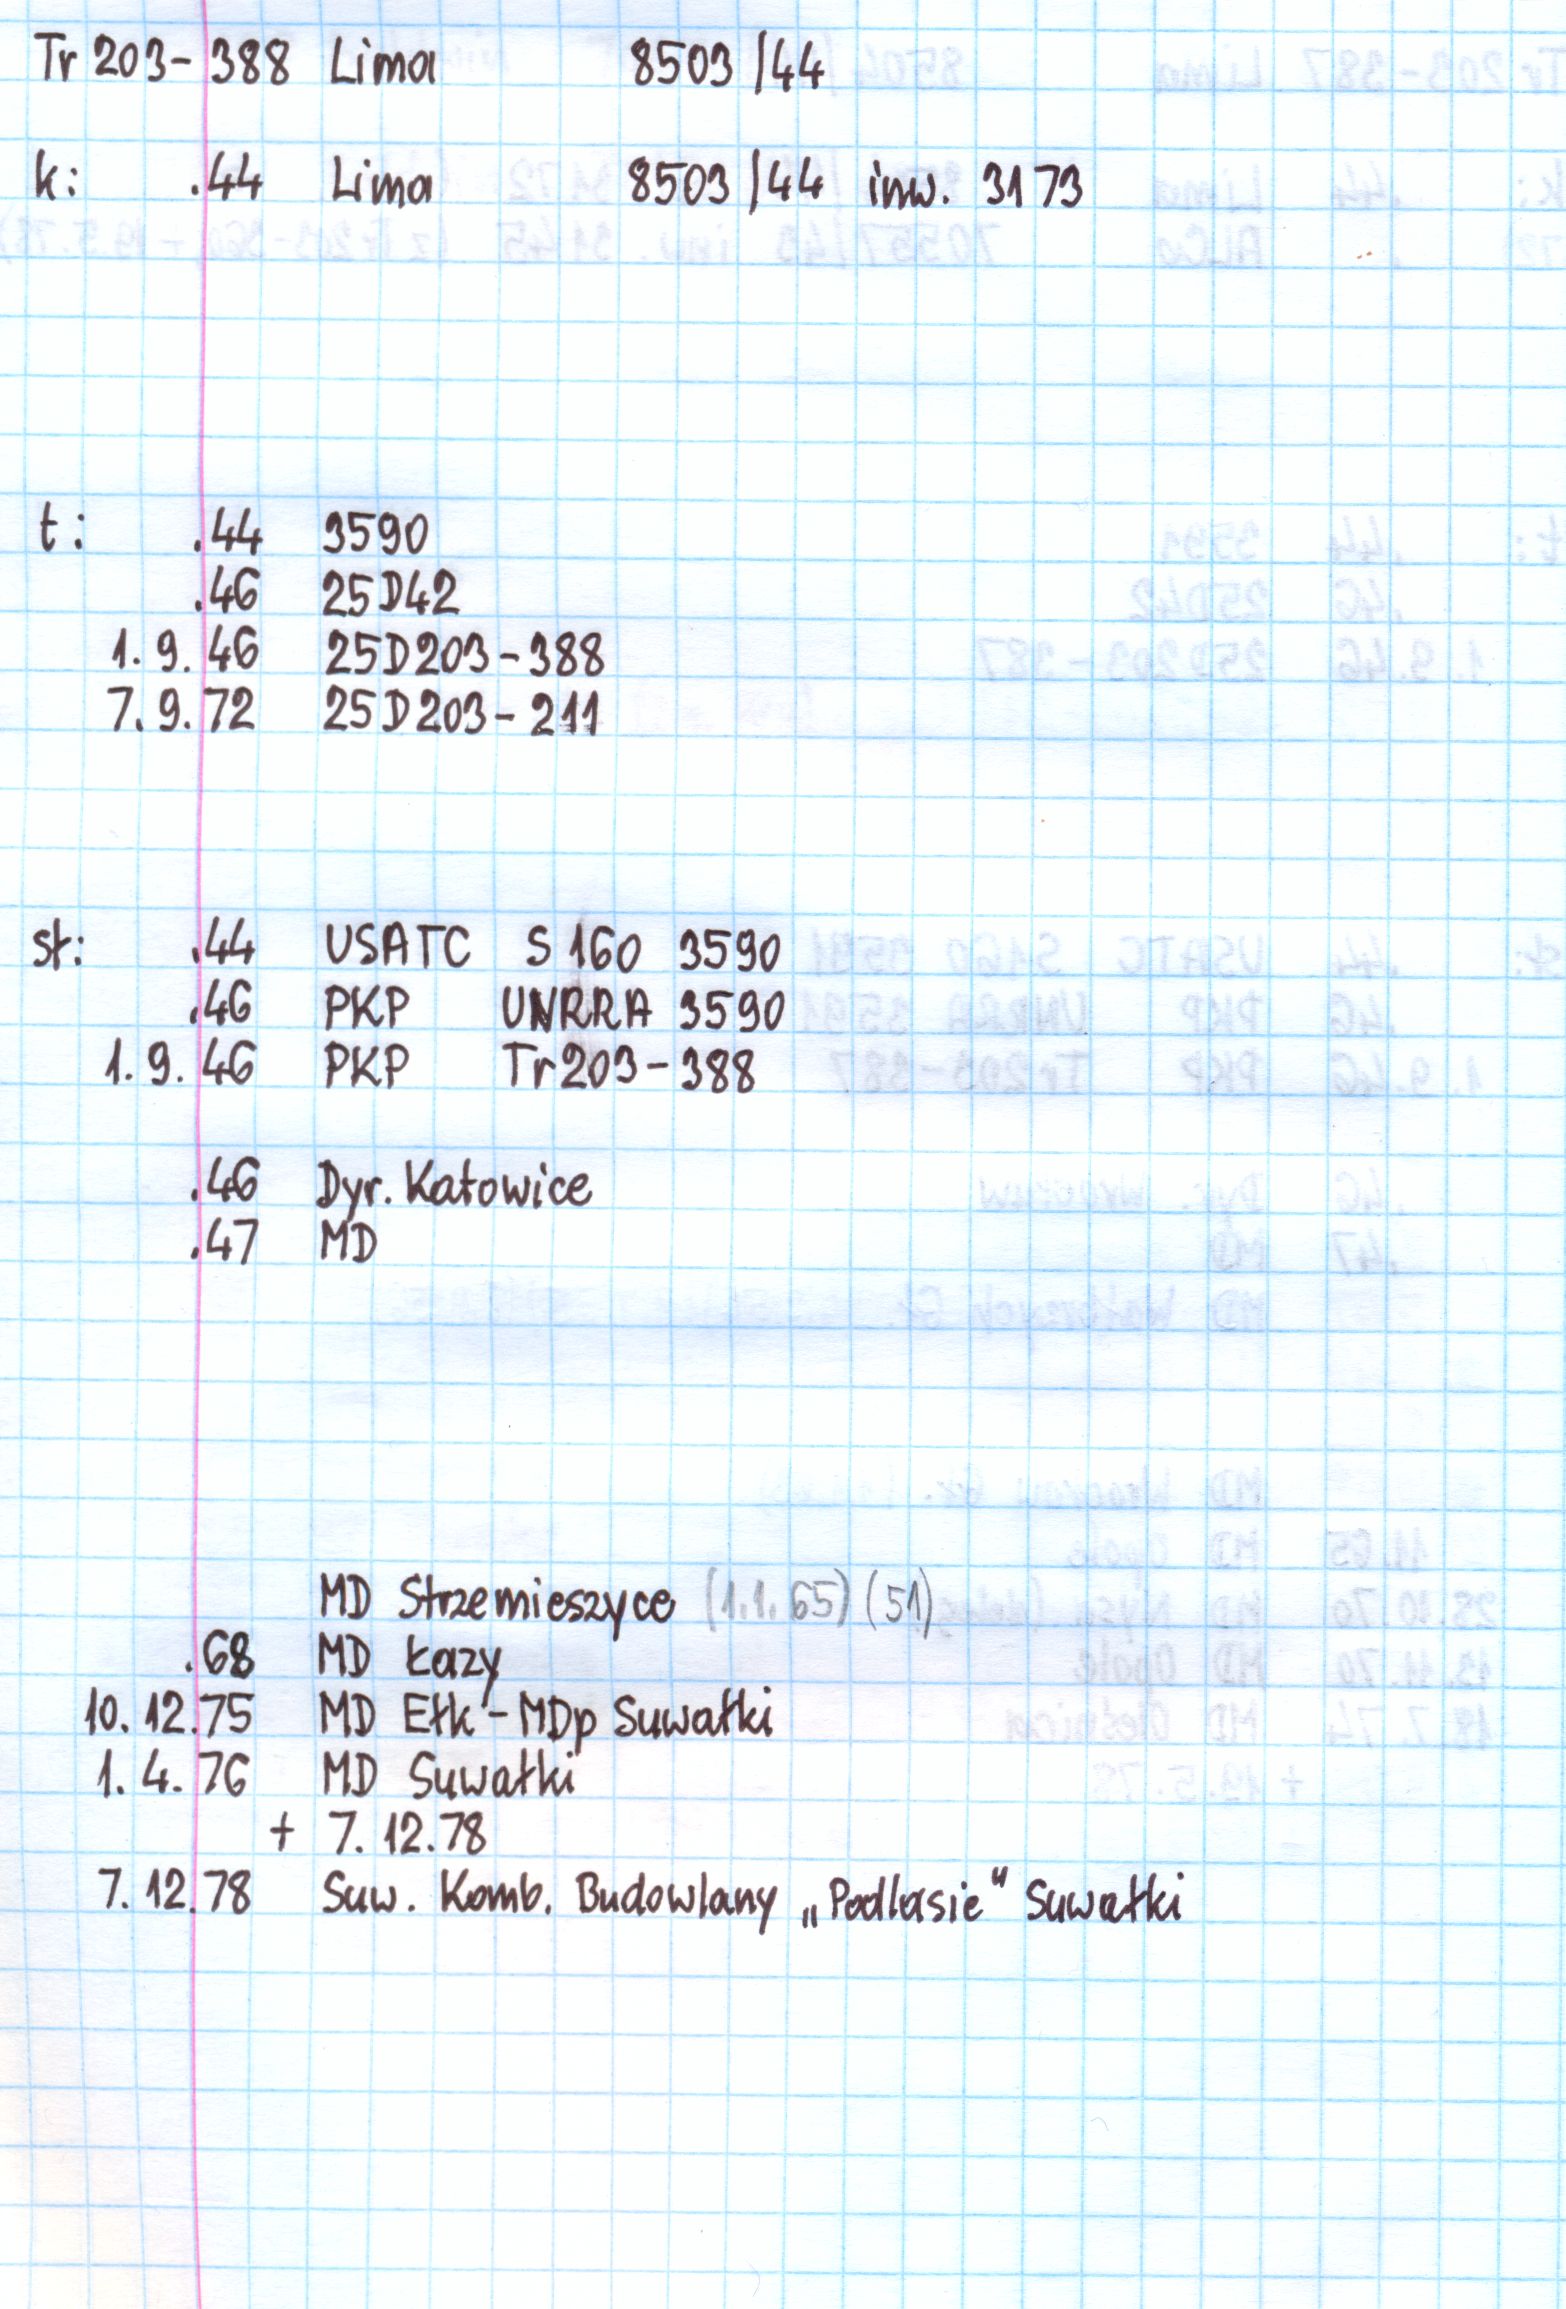 Tr 203-388 Lima 8503/44
k: .44 Lima 8503/44 inw. 3173
t: .44 3590
.46 25D42
1.9.46 25D203-388
7.9.72 25D203-211
st: .44 USATC S160 3590
.46 PKP UNRRA 3590
1.9.46 PKP Tr203-388
.46 Dyr. Katowice
.47 MD
MD Strzemieszyce (1.1.65) (51)
.68 MD Łazy
10.12.75 MD Ełk - MDp Suwałki
1.4.76 MD Suwałki
+ 7.12.78
7.12.78 Suw. Komb. Budowlany „Podlasie" Suwałki